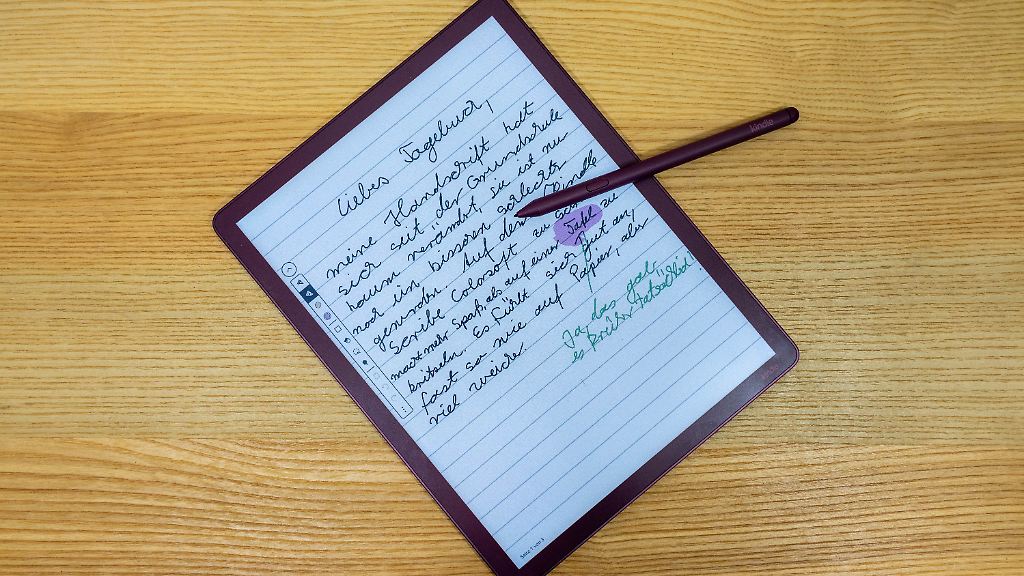 Liebes Tagebuch,
meine Handschrift hat
sich seit der Grundschule
kaum verändert, sie ist nur
noch ein bisschen schlechter
geworden. Auf dem Kindle
Scribe Colorsoft zu
macht mehr Spaß, als auf einer Tafel zu
kritzeln. Es fühlt sich gut an,
fast so wie auf Papier, aber
viel weicher.
Ja, das gab
es früher tatsächlich!
kindle
Seite 1 von 1